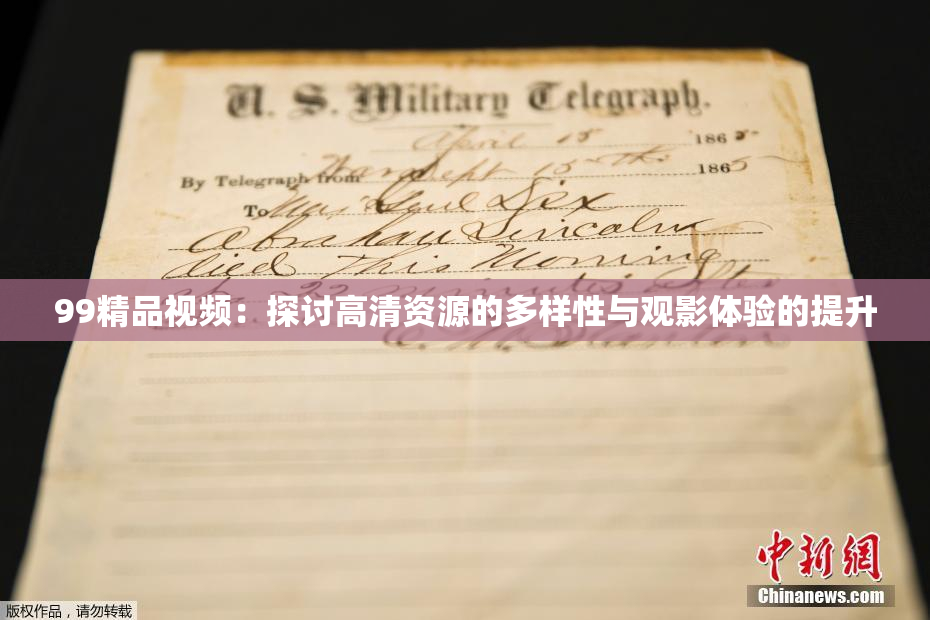 U. S. Military Telegraph.
April 15 1865
By Telegraph from War Dept 15th 1865
To Maj Genl Dix
Abraham Lincoln
died This Morning
at 22 minutes after
99精品视频：探讨高清资源的多样性与观影体验的提升
E. M. Stanton
中新网
Chinanews.com
版权作品，请勿转载